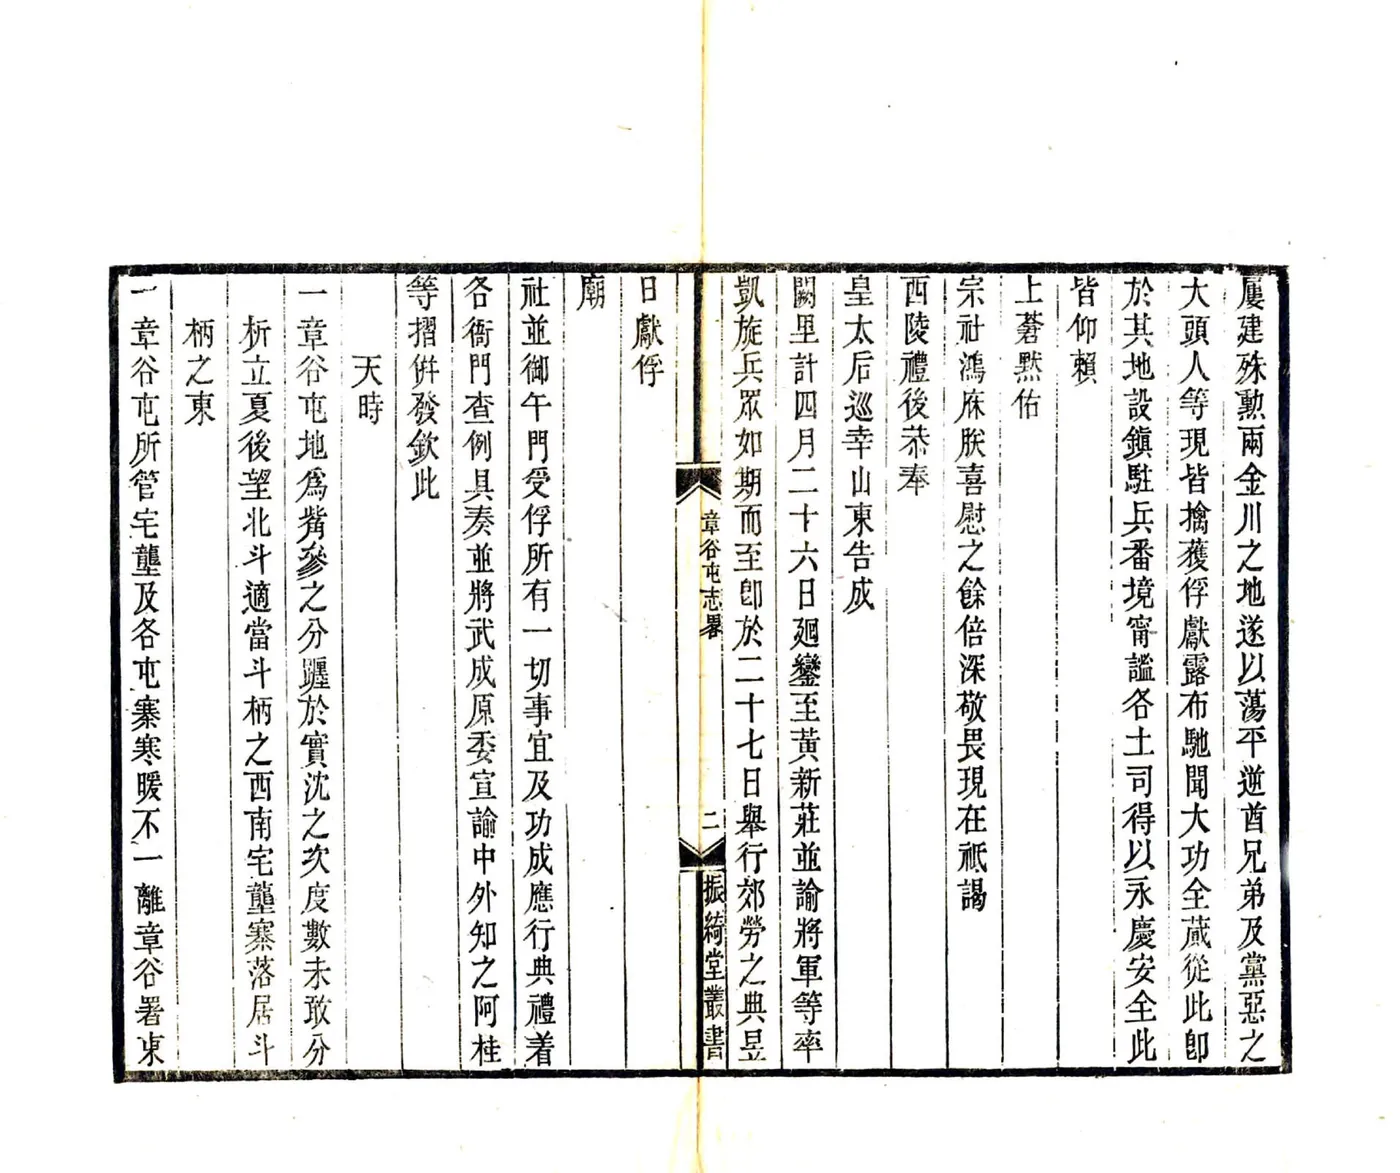 屢建殊勳兩金川之地遂以蕩平逆酋兄弟及黨惡之
大頭人等現皆擒獲俘獻露布馳聞大功全蕆從此卽
於其地設鎭駐兵番境甯謐各土司得以永慶安全此
皆仰賴
上蒼黙佑
宗社鴻庥朕喜慰之餘倍深敬畏現在祗謁
西陵禮後恭奉
皇太后巡幸山東告成
闕里計四月二十六日廻鑾至黃新莊並諭將軍等率
凱旋兵眾如期而至卽於二十七日舉行郊勞之典昱
章谷屯志畧
二
振綺堂叢書
日獻俘
廟
社並御午門受俘所有一切事宜及功成應行典禮着
各衙門查例具奏並將武成原委宣諭中外知之阿桂
等摺倂發欽此
天時
一章谷屯地爲觜參之分躔於實沈之次度數未敢分
析立夏後望北斗適當斗柄之西南宅壟寨落居斗
柄之東
一章谷屯所管宅壟及各屯寨寒暖不一離章谷署東